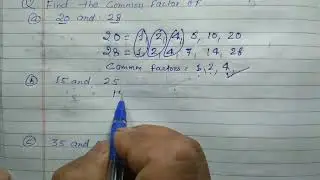 Q Find the Common factor of
(a) 20 and 28
20 = 1, 2, 4, 5, 10, 20
28 = 1, 2, 4, 7, 14, 28
Common factors = 1, 2, 4
(b) 15 and 25
(c) 35 and